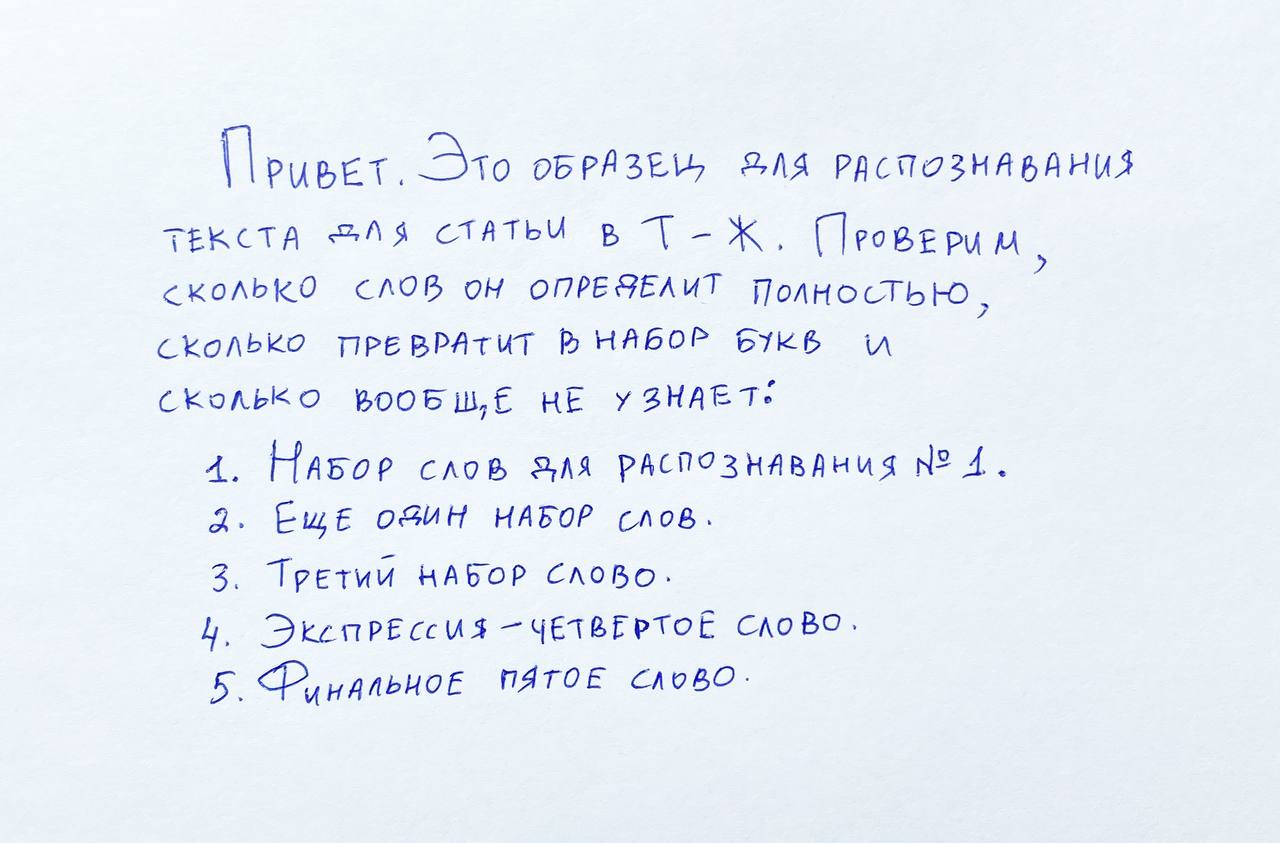 Привет. Это образец для распознавания
текста для статьи в Т-Ж. Проверим,
сколько слов он определит полностью,
сколько превратит в набор букв и
сколько вообще не узнает:
1. Набор слов для распознавания № 1.
2. Еще один набор слов.
3. Третий набор слово.
4. Экспрессия-четвертое слово.
5. Финальное пятое слово.